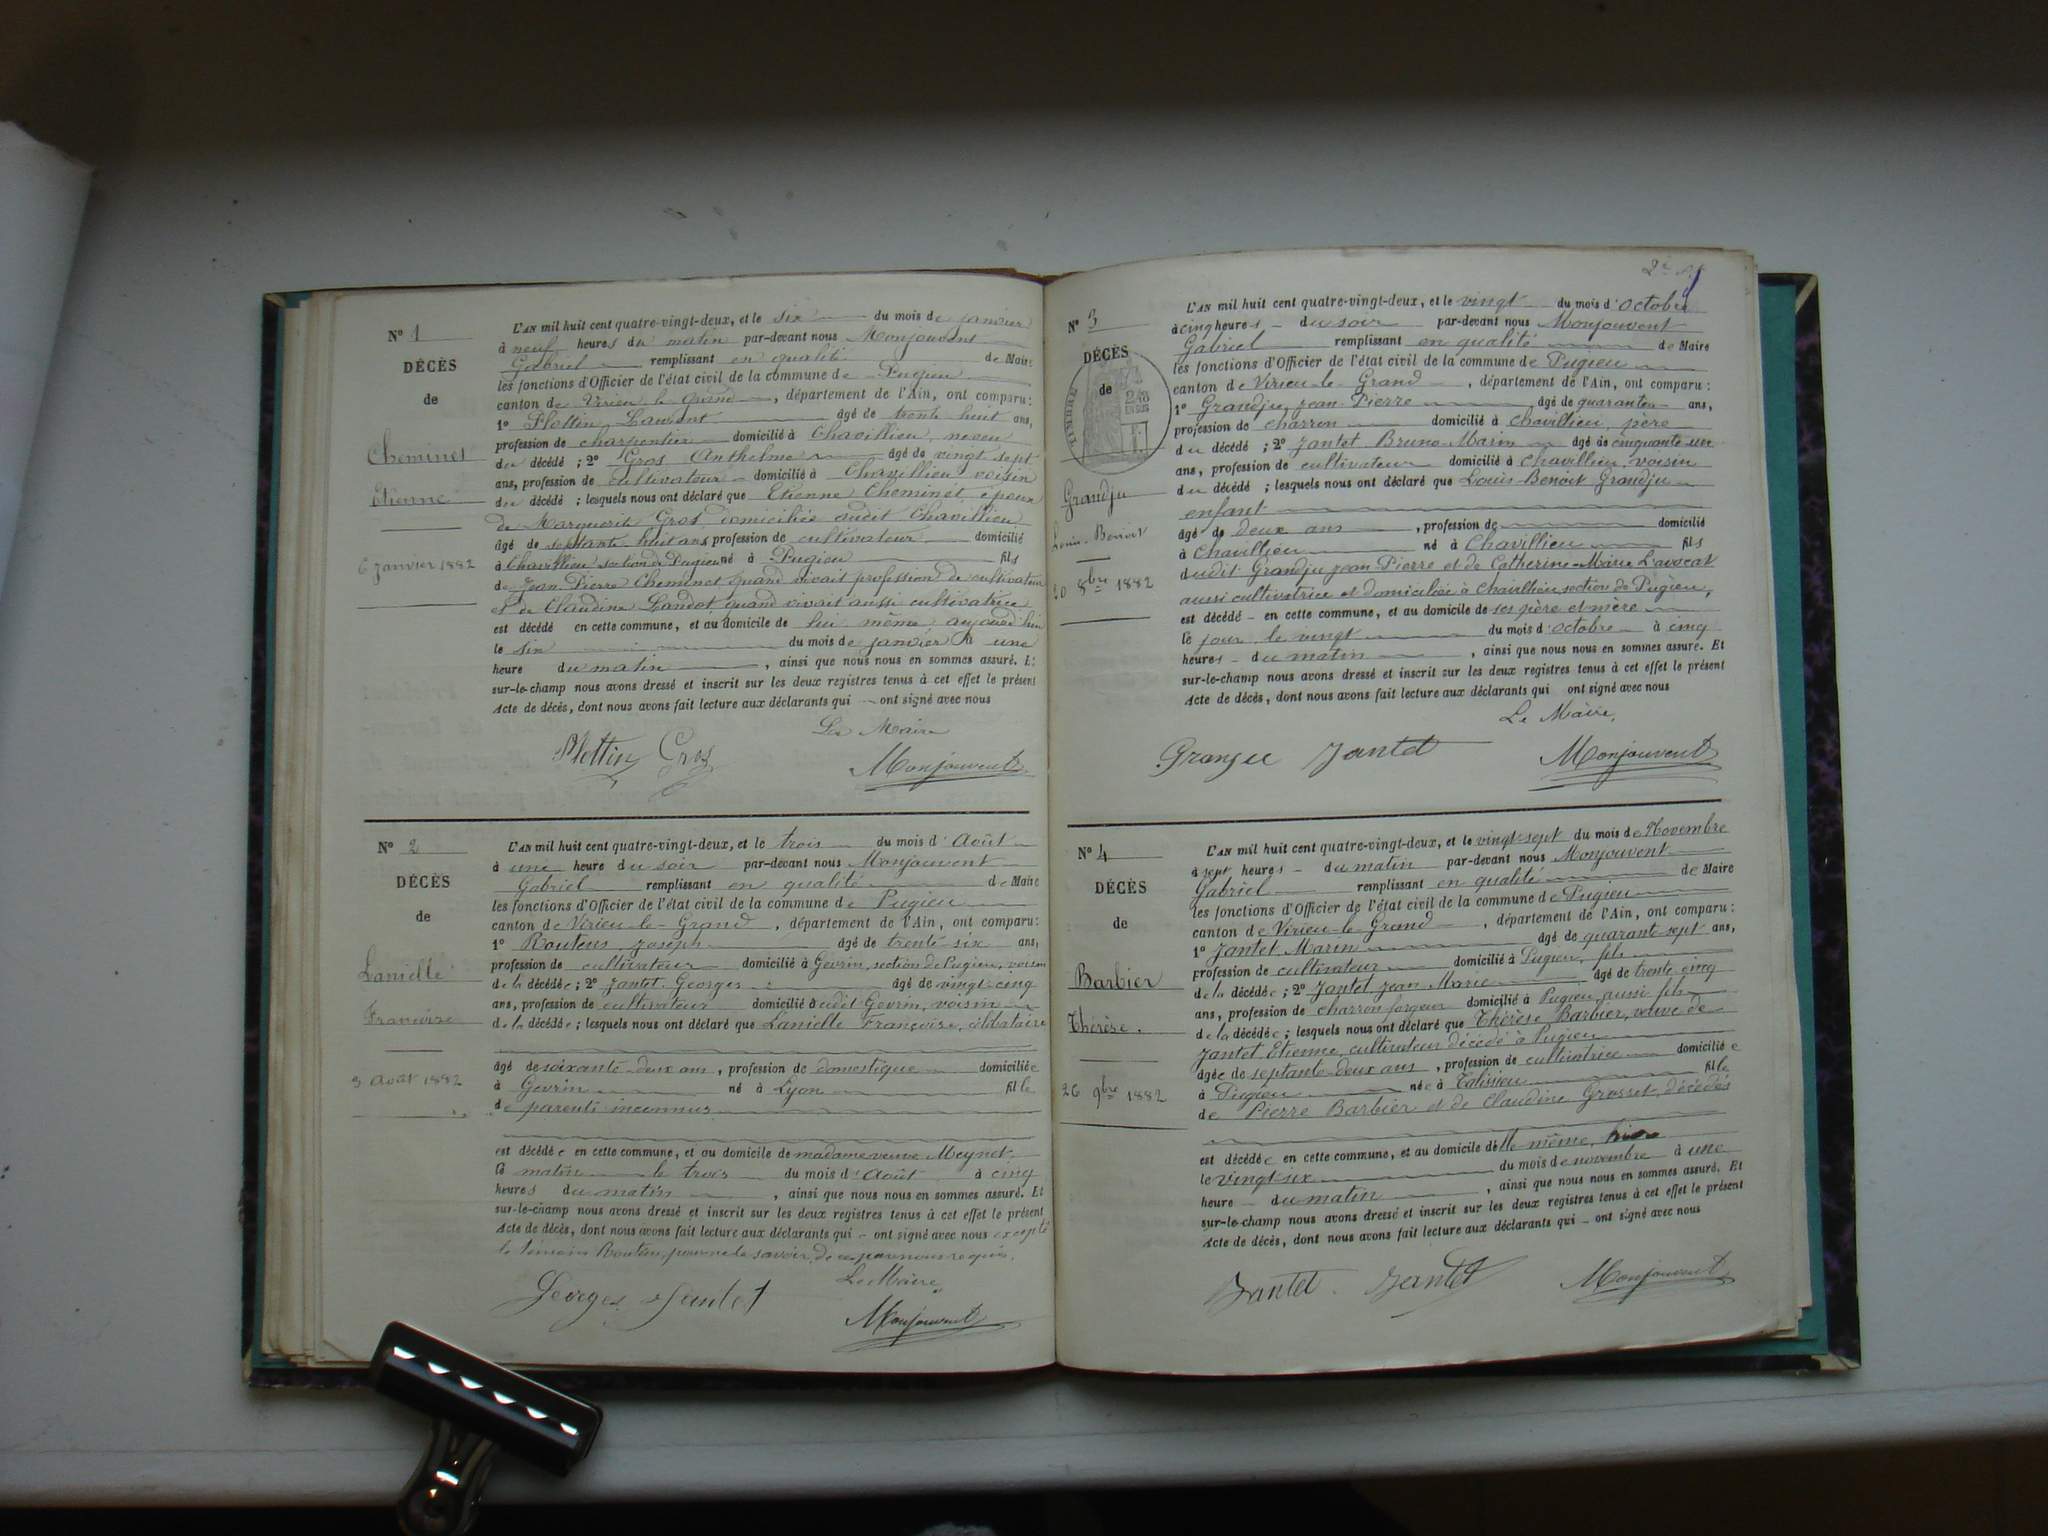 N° 1
DÉCÈS
de
Cheminet
Etienne
6 Janvier 1882
L'AN mil huit cent quatre-vingt-deux, et le six du mois de janvier
à neuf heures du matin par-devant nous Monjouvent
Gabriel remplissant en qualité de Maire
les fonctions d'Officier de l'état civil de la commune de Pugieu
canton de Virieu le Grand, département de l'Ain, ont comparu:
1° Plottin Laurent âgé de trente huit ans,
profession de charpentier domicilié à Chavillieu, neveu
du décédé; 2° Gros Anthelme âgé de vingt sept
ans, profession de cultivateur domicilié à Chavillieu voisin
du décédé; lesquels nous ont déclaré que Etienne Cheminet, époux
de Marguerite Gros, domiciliée audit Chavillieu
âgé de septante-huit ans profession de cultivateur domicilié
à Chavillieu section de Pugieu né à Pugieu fils
de Jean-Pierre Cheminet quand vivait profession de cultivateur
et de Claudine Landot, quand vivait aussi cultivatrice
est décédé en cette commune, et au domicile de lui même, aujourd'hui
le six du mois de janvier à une
heure du matin, ainsi que nous nous en sommes assuré. Et
sur-le-champ nous avons dressé et inscrit sur les deux registres tenus à cet effet le présent
Acte de décès, dont nous avons fait lecture aux déclarants qui ont signé avec nous
Le Maire
Plottin Gros Monjouvent
N° 2
DÉCÈS
de
Lanielle
Françoise
3 Août 1882
L'AN mil huit cent quatre-vingt-deux, et le trois du mois d'Août
à une heure du soir par-devant nous Monjouvent
Gabriel remplissant en qualité de Maire
les fonctions d'Officier de l'état civil de la commune de Pugieu
canton de Virieu-le-Grand, département de l'Ain, ont comparu:
1° Routens Joseph âgé de trente six ans,
profession de cultivateur domicilié à Gevrin, section de Pugieu, voisin
de la décédée; 2° Jantet Georges âgé de vingt-cinq
ans, profession de cultivateur domicilié audit Gevrin, voisin
de la décédée; lesquels nous ont déclaré que Lanielle Françoise, célibataire
âgé de soixante-deux ans, profession de domestique domiciliée
à Gevrin né à Lyon fille
de parents inconnus
est décédée en cette commune, et au domicile de madame veuve Meynet,
le matin le trois du mois d'Août à cinq
heures du matin, ainsi que nous nous en sommes assuré. Et
sur-le-champ nous avons dressé et inscrit sur les deux registres tenus à cet effet le présent
Acte de décès, dont nous avons fait lecture aux déclarants qui ont signé avec nous excepté
le témoin Routens, pour ne le savoir, de ce par nous requis.
Le Maire,
Georges Jantet Monjouvent
N° 3
DÉCÈS
de
TIMBRE
Grandju
Louis-Benoit
20 8bre 1882
L'AN mil huit cent quatre-vingt-deux, et le vingt du mois d'Octobre
à cinq heures du soir par-devant nous Monjouvent
Gabriel remplissant en qualité de Maire
les fonctions d'Officier de l'état civil de la commune de Pugieu
canton de Virieu-le-Grand, département de l'Ain, ont comparu:
1° Grandju, Jean-Pierre âgé de quarante ans,
profession de charron domicilié à Chavillieu, père
du décédé; 2° Jantet Bruno-Marin âgé de cinquante-un
ans, profession de cultivateur domicilié à Chavillieu, voisin
du décédé; lesquels nous ont déclaré que Louis-Benoit Grandju
enfant
âgé de deux ans, profession de domicilié
à Chavillieu né à Chavillieu fils
dudit Grandju Jean Pierre et de Catherine-Marie Lavocat
aussi cultivatrice et domiciliée à Chavillieu section de Pugieu,
est décédé en cette commune, et au domicile de ses père et mère
le jour le vingt du mois d'Octobre à cinq
heures du matin, ainsi que nous nous en sommes assuré. Et
sur-le-champ nous avons dressé et inscrit sur les deux registres tenus à cet effet le présent
Acte de décès, dont nous avons fait lecture aux déclarants qui ont signé avec nous
Le Maire,
Granjee Jantet Monjouvent
N° 4
DÉCÈS
de
Barbier
Thérèse.
26 9bre 1882
L'AN mil huit cent quatre-vingt-deux, et le vingt-sept du mois de Novembre
à sept heures du matin par-devant nous Monjouvent
Gabriel remplissant en qualité de Maire
les fonctions d'Officier de l'état civil de la commune de Pugieu
canton de Virieu-le-Grand, département de l'Ain, ont comparu:
1° Jantet Marin âgé de quarante-sept ans,
profession de cultivateur domicilié à Pugieu, fils
de la décédée; 2° Jantet Jean-Marie âgé de trente cinq
ans, profession de charron forgeur domicilié à Pugieu, aussi fils
de la décédée; lesquels nous ont déclaré que Thérèse Barbier, veuve de
Jantet Etienne, cultivateur décédé à Pugieu
âgée de septante-deux ans, profession de cultivatrice domiciliée
à Pugieu née à Talissieu fille
de Pierre Barbier et de Claudine Grosset, décédés
est décédée en cette commune, et au domicile d'elle même, hier
le vingt-six du mois de novembre à une
heure du matin, ainsi que nous nous en sommes assuré. Et
sur-le-champ nous avons dressé et inscrit sur les deux registres tenus à cet effet le présent
Acte de décès, dont nous avons fait lecture aux déclarants qui ont signé avec nous
Jantet Jantet Monjouvent